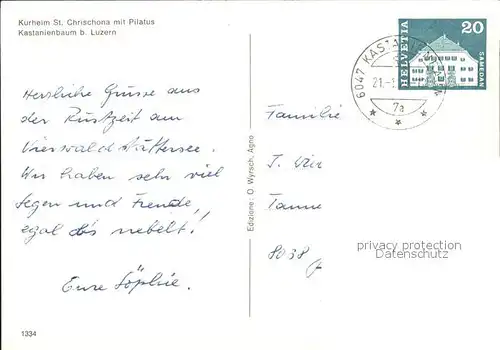 Kurheim St. Chrischona mit Pilatus
Kastanienbaum b. Luzern
Herzliche Grüsse aus
der Rüstzeit am
Vierwaldstättersee.
Wir haben sehr viel
Segen und Freude,
egal ob's nebelt!
Eure Söphie.
1334
Edizione: O. Wyrsch, Agno
HELVETIA
20
SAMEDAN
6047 KASTANIENBAUM
21.
7a
Familie
J.
Tanne
8038
privacy protection
Datenschutz